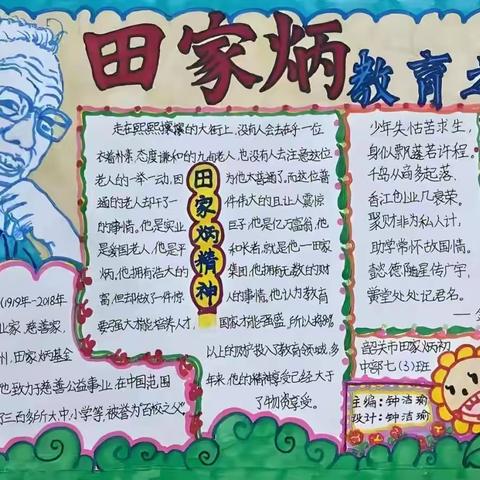 田家炳
教育之
走在熙熙攘攘的大街上，没有人会去在乎一位
衣着朴素，态度谦和的九旬老人，也没有人去注意这位
老人的一举一动，因为他太普通了，而这位普
通的老人却干了一件伟大的且让人震惊
的事情。他是实业巨子，他是亿万富翁，他
是爱国老人，他是平和长者，就是他一田家
炳。他拥有浩大的集团，他拥有无数的财
富，但却做了一件惊人的事情。他认为教育
要强大才能培养人才，国家才能强盛，所以将88%
以上的财产投入了教育领域，多
年来，他的精神享受已经大于
了物质享受。
田家炳精神
(1919年-2018年
业家，慈善家，
州，田家炳基金
他致力于慈善公益事业，在中国范围
了三百多所大中小学等，被誉为“百校之父”
少年失怙苦求生，
身似飘蓬若许程。
千岛从商多起落，
香江创业几衰荣。
聚财非为私人计，
助学常怀故国情。
懿德随星传广宇，
黉堂处处记君名。
韶关市田家炳初
中部七（3）班
主编：钟洁瑜
设计：钟洁瑜